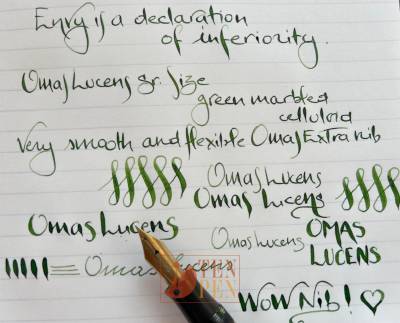 Envy is a declaration
of inferiority.
Omas Lucens gr. size
green marbled
celluloid
very smooth and flexible Omas Extra nib
Omas Lucens
Omas Lucens
Omas Lucens
Omas Lucens
OMAS
LUCENS
Omas Lucens
TEN
PEN
WOW Nib! ♡